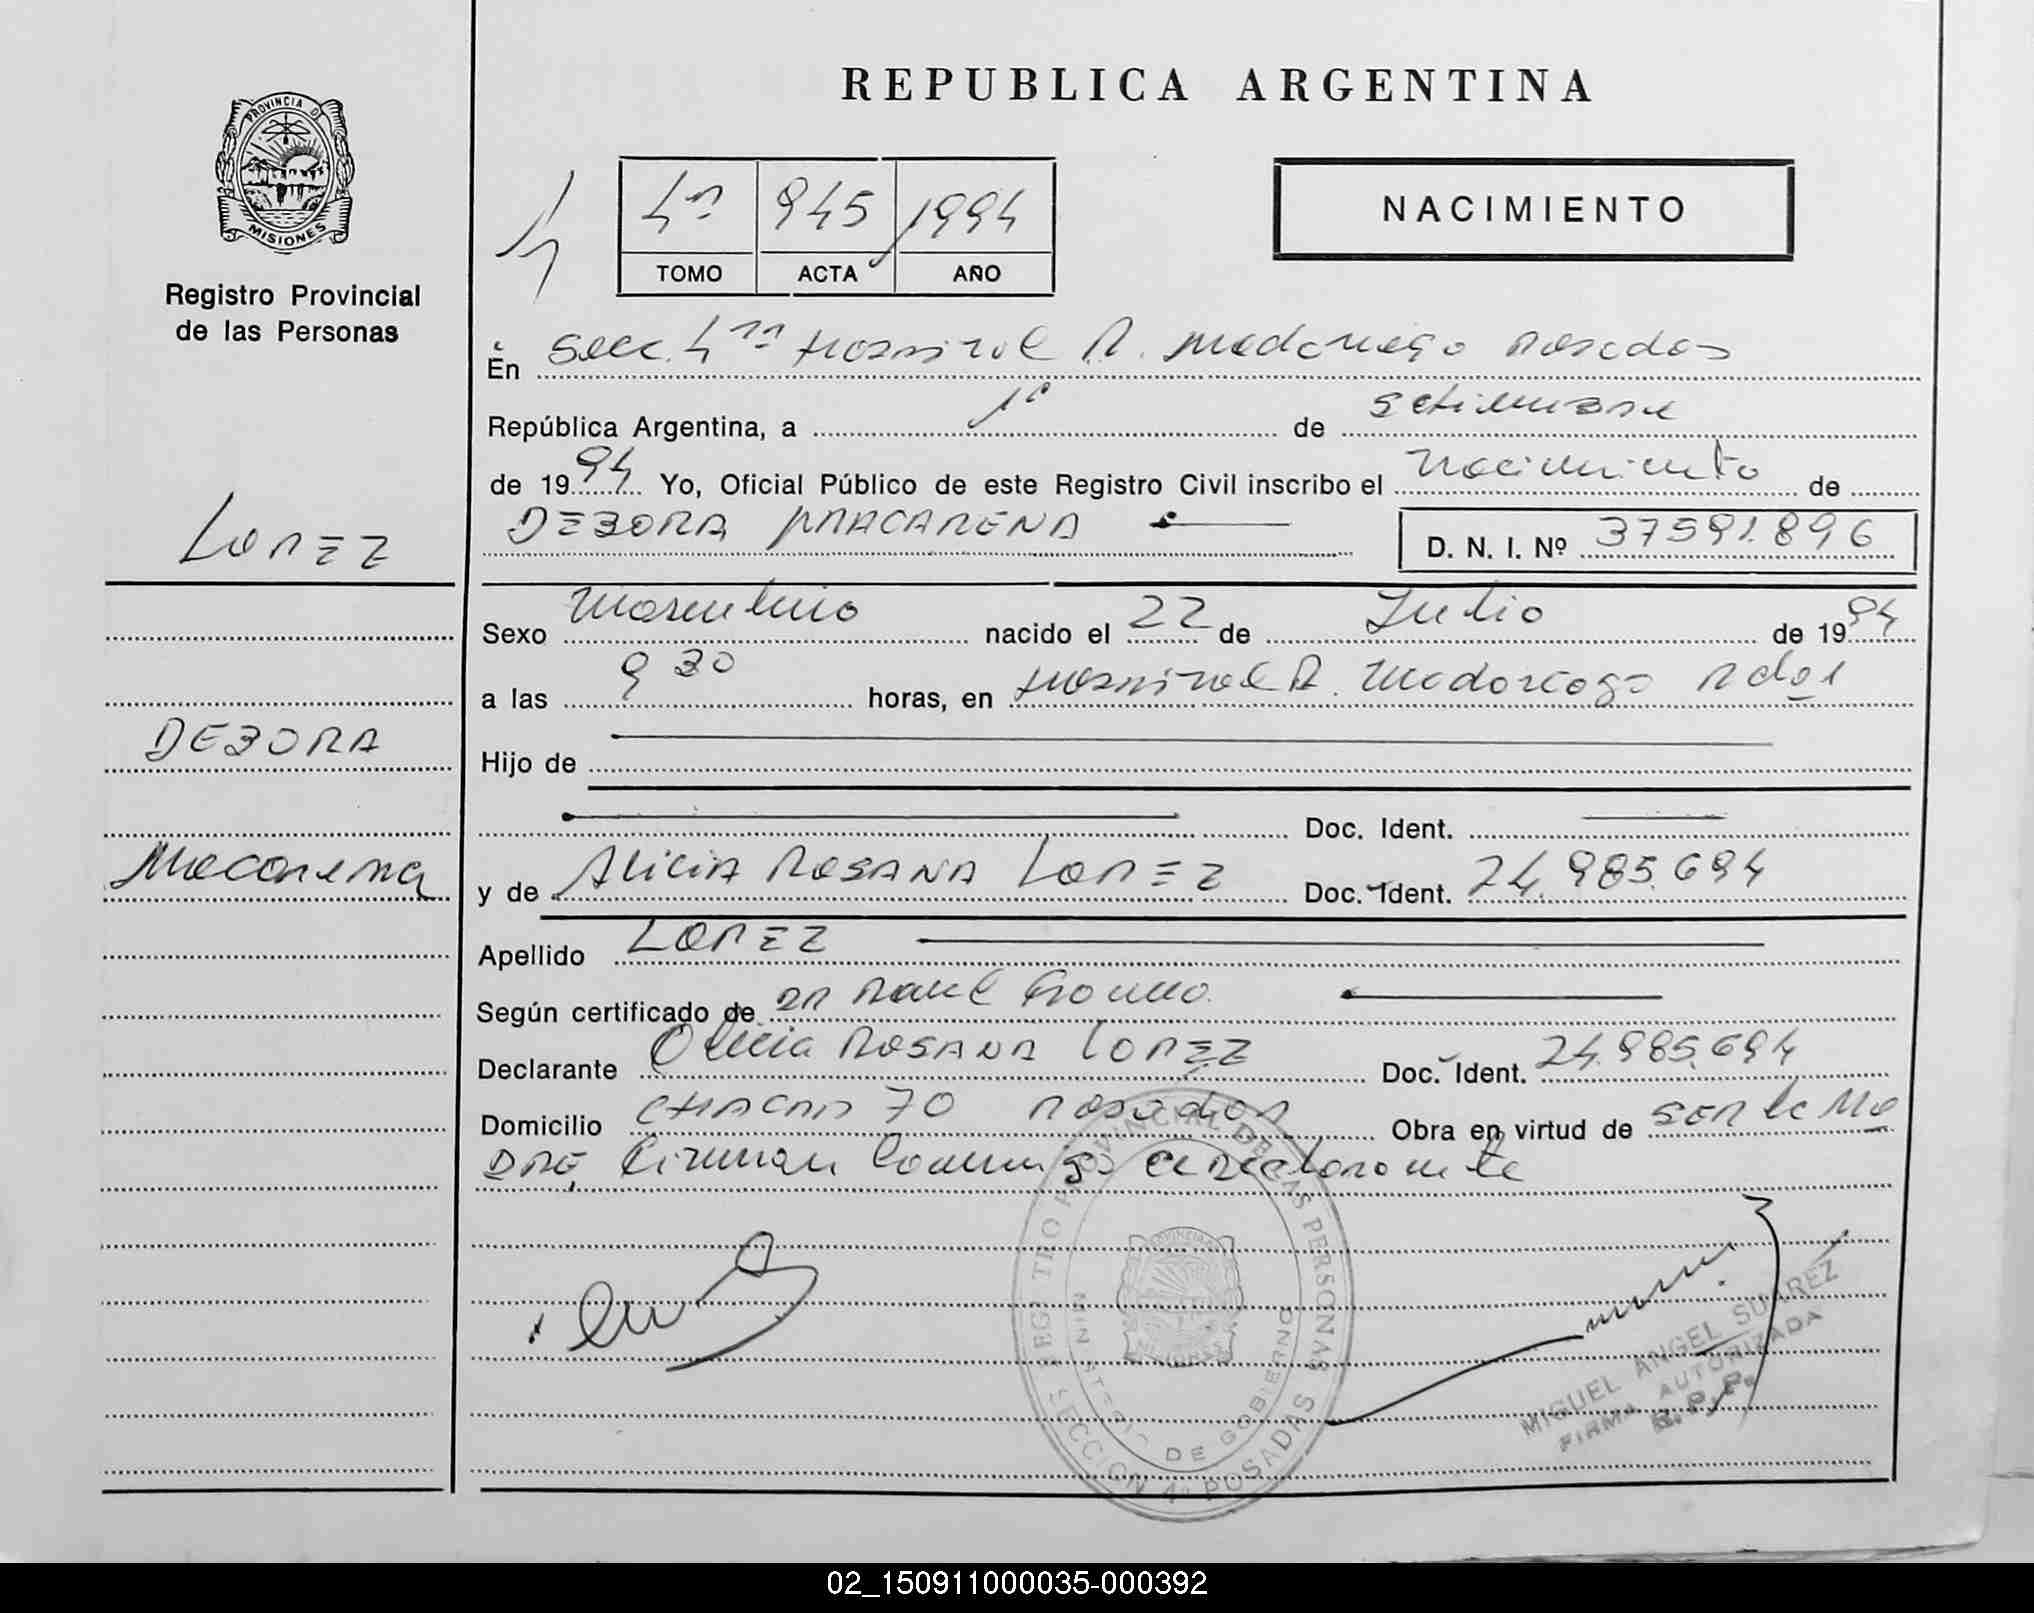 REPUBLICA ARGENTINA
PROVINCIA DE
MISIONES
Registro Provincial
de las Personas
4ª 945 1994
TOMO ACTA AÑO
NACIMIENTO
En Secc. 4ta Hospital R. Madariaga Posadas
República Argentina, a 1º de setiembre
de 1994 Yo, Oficial Público de este Registro Civil inscribo el nacimiento de
LOPEZ
DEBORA MACARENA
D. N. I. Nº 37591.896
Sexo Masculino nacido el 22 de Julio de 1994
a las 9 30 horas, en Hospital R. Madariaga Pdas
DEBORA
Hijo de
Doc. Ident.
Macarena
y de Alicia ROSANA LOPEZ Doc. Ident. 24.985.694
Apellido LOPEZ
Según certificado de DR Raul
Declarante Alicia ROSANA LOPEZ Doc. Ident. 24.985.694
Domicilio CHACRA 70 Posadas Obra en virtud de SER la Ma
DRE, Firman Conmigo el Declarante
REGISTRO PROVINCIAL DE LAS PERSONAS
MINISTERIO DE GOBIERNO
SECCION 4ª POSADAS
MIGUEL ANGEL SUAREZ
FIRMA AUTORIZADA
R. P. P.
02_150911000035-000392